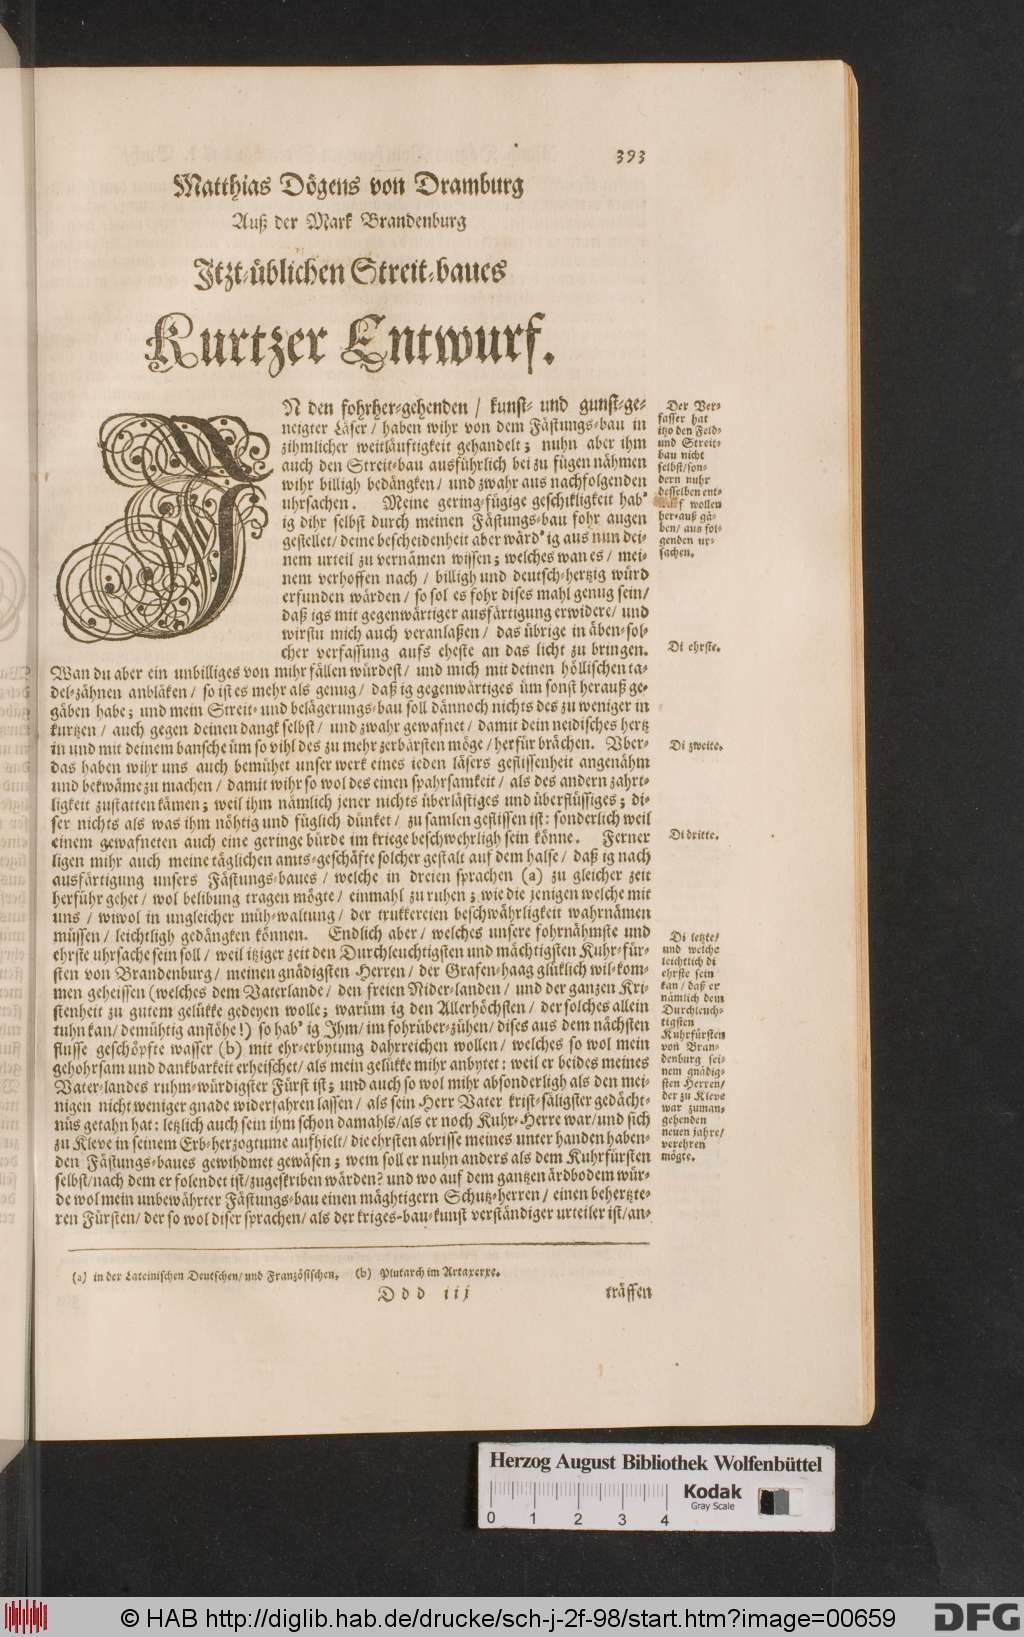 393
Matthias Dögens von Dramburg
Auß der Mark Brandenburg
Jtzt-üblichen Streit-baues
Kurtzer Entwurf.
JN den fohrher-gehenden / kunst- und gunst-ge-
neigter Läser / haben wihr von dem Fästungs-bau in
zihmlicher weitläuftigkeit gehandelt; nuhn aber ihm
auch den Streit-bau ausführlich bei zu fügen nähmen
wihr billigh bedängken / und zwahr aus nachfolgenden
uhrsachen. Meine gering-fügige geschikligkeit hab'
ig dihr selbst durch meinen Fästungs-bau fohr augen
gestellet / deine bescheidenheit aber wärd' ig aus nun dei-
nem urteil zu vernämen wissen; welches wan es / mei-
nem verhoffen nach / billigh und deutsch-hertzig würd
erfunden wärden / so sol es fohr dises mahl genug sein /
daß igs mit gegenwärtiger ausfärtigung erwidere / und
wirstu mich auch veranlaßen / das übrige in äben-sol-
cher verfassung aufs eheste an das licht zu bringen.
Wan du aber ein unbilliges von mihr fällen würdest / und mich mit deinen höllischen ta-
del-zähnen anbläken / so ist es mehr als genug / daß ig gegenwärtiges üm sonst herauß ge-
gäben habe; und mein Streit- und belägerungs-bau soll dännoch nichts des zu weniger in
kurtzen / auch gegen deinen dangk selbst / und zwahr gewafnet / damit dein neidisches hertz
in und mit deinem bansche üm so vihl des zu mehr zerbärsten möge / herfür brächen. Vber-
das haben wihr uns auch bemühet unser werk eines ieden läsers geflissenheit angenähm
und bekwäme zu machen / damit wihr so wol des einen spahrsamkeit / als des andern zahrt-
ligkeit zustatten kämen; weil ihm nämlich jener nichts überlästiges und überflüssiges; di-
ser nichts als was ihm nöhtig und füglich dünket / zu samlen geflissen ist: sonderlich weil
einem gewafneten auch eine geringe bürde im kriege beschwehrligh sein könne. Ferner
ligen mihr auch meine täglichen amts-geschäfte solcher gestalt auf dem halse / daß ig nach
ausfärtigung unsers Fästungs-baues / welche in dreien sprachen (a) zu gleicher zeit
herführ gehet / wol belibung tragen mögte / einmahl zu ruhen; wie die jenigen welche mit
uns / wiwol in ungleicher müh-waltung / der trukkereien beschwährligkeit wahrnämen
müssen / leichtligh gedängken können. Endlich aber / welches unsere fohrnähmste und
ehrste uhrsache sein soll / weil itziger zeit den Durchleuchtigsten und mächtigsten Kuhr-für-
sten von Brandenburg / meinen gnädigsten Herren / der Grafen-haag glüklich wil-kom-
men geheissen (welches dem Vaterlande / den freien Nider-landen / und der ganzen Kri-
stenheit zu gutem gelükke gedeyen wolle; warüm ig den Allerhöchsten / der solches allein
tuhn kan / demühtig anflöhe!) so hab' ig Jhm / im fohrüber-zühen / dises aus dem nächsten
flusse geschöpfte wasser (b) mit ehr-erbytung dahrreichen wollen / welches so wol mein
gehohrsam und dankbarkeit erheischet / als mein gelükke mihr anbytet: weil er beides meines
Vater-landes ruhm-würdigster Fürst ist; und auch so wol mihr absonderligh als den mei-
nigen nicht weniger gnade widerfahren lassen / als sein Herr Vater krist-säligster gedächt-
nüs getahn hat: letzlich auch sein ihm schon damahls / als er noch Kuhr-Herre war / und sich
zu Kleve in seinem Erb-herzogtume aufhielt / die ehrsten abrisse meines unter handen haben-
den Fästungs-baues gewihdmet gewäsen; wem soll er nuhn anders als dem Kuhrfürsten
selbst / nach dem er folendet ist / zugeskriben wärden? und wo auf dem gantzen ärdbodem wür-
de wol mein unbewährter Fästungs-bau einen mäghtigern Schutz-herren / einen behertzte-
ren Fürsten / der so wol diser sprachen / als der kriges-bau-kunst verständiger urteiler ist / an-
Der Ver-
fasser hat
itzo den Feld-
und Streit-
bau nicht
selbst / son-
dern nuhr
desselben ent-
wurf wollen
her-auß gä-
ben / aus fol-
genden ur-
sachen.
Di ehrste.
Di zweite.
Di dritte.
Di letzte /
und welche
leichtlich di
ehrste sein
kan / daß er
nämlich dem
Durchleuch-
tigsten
Kuhrfürsten
von Bran-
denburg sei-
nem gnädig-
sten Herren /
der zu Kleve
war zuman-
gehenden
neuen jahre /
verehren
mögte.
(a) in der Lateinischen Deutschen / und Französischen. (b) Plutarch im Artaxerxe.
Ddd iij
träffen
Herzog August Bibliothek Wolfenbüttel
Kodak
Gray Scale
0 1 2 3 4
© HAB http://diglib.hab.de/drucke/sch-j-2f-98/start.htm?image=00659
DFG